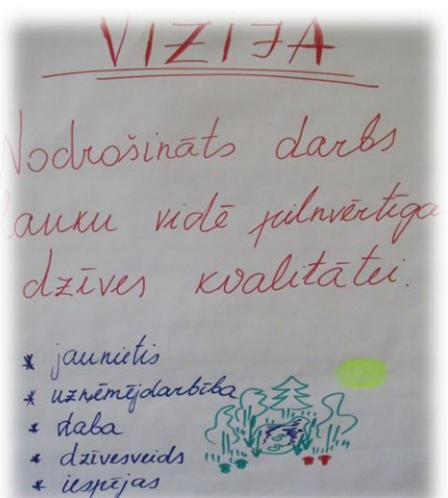 VĪZIJA
Nodrošināts darbs
lauku vidē pilnvērtīga
dzīves kvalitātei.
* jaunietis
* uzņēmējdarbība
* daba
* dzīvesveids
* iespējas